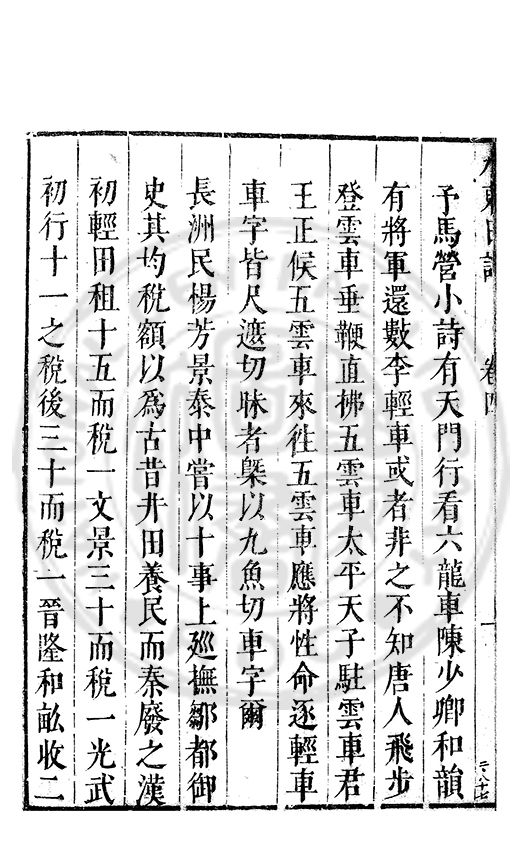 水東日記 卷四
予馬營小詩有天門行看六龍車陳少卿和韻
有將軍還數李輕車或者非之不知唐人飛步
登雲車垂鞭直拂五雲車太平天子駐雲車君
王正候五雲車來往五雲車應將性命逐輕車
車字皆尺遮切昧者槩以九魚切車字爾
長洲民楊芳景泰中嘗以十事上廵撫鄒都御
史其均稅額以爲古昔井田養民而秦廢之漢
初輕田租十五而稅一文景三十而稅一光武
初行十一之稅後三十而稅一晉隆和畝收二